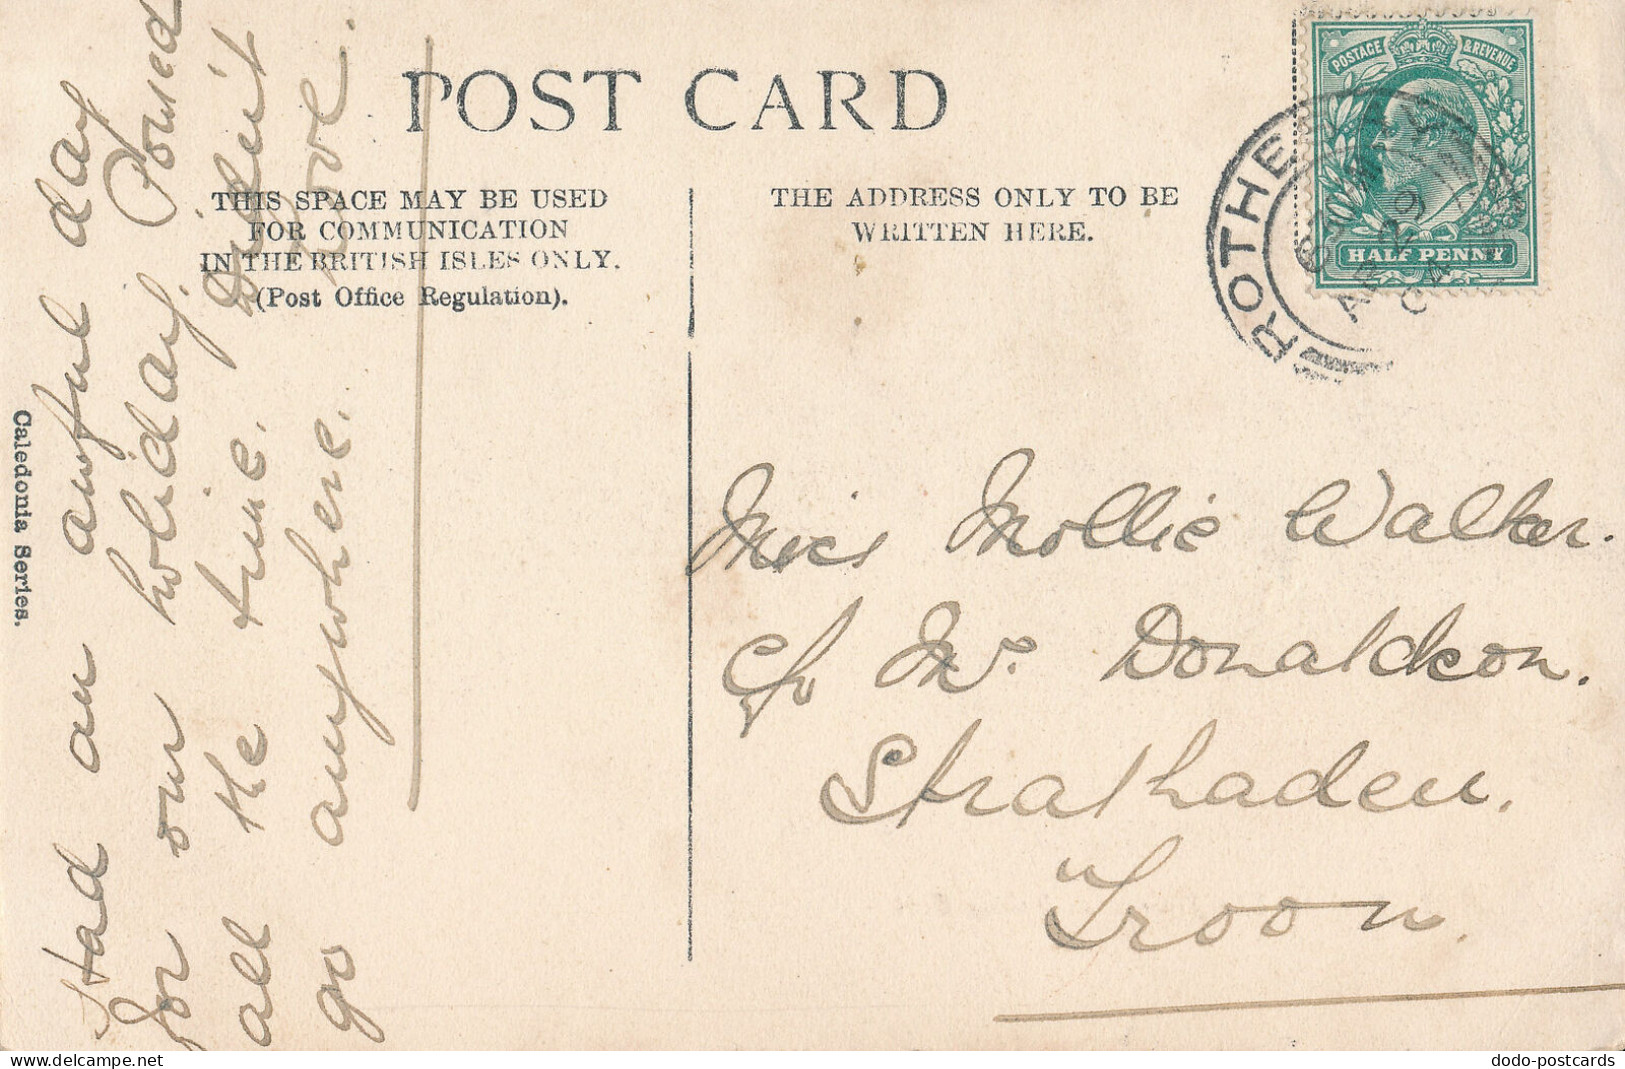 POST CARD
THIS SPACE MAY BE USED
FOR COMMUNICATION
IN THE BRITISH ISLES ONLY.
(Post Office Regulation).
THE ADDRESS ONLY TO BE
WRITTEN HERE.
POSTAGE & REVENUE
HALF PENNY
ROTHE
AP 29
Caledonia Series.
Had an awful day
for our holiday. Poured
all the time. Didn't
go anywhere. Love.
Miss Mollie Walker.
c/o Mrs. Donaldson.
Strathaden.
Troon.
dodo-postcards
delcampe.net